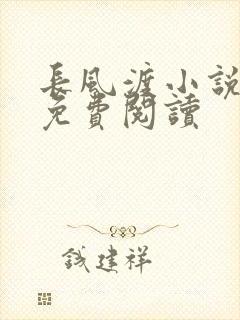 長風渡小說
免費閱讀
錢建祥